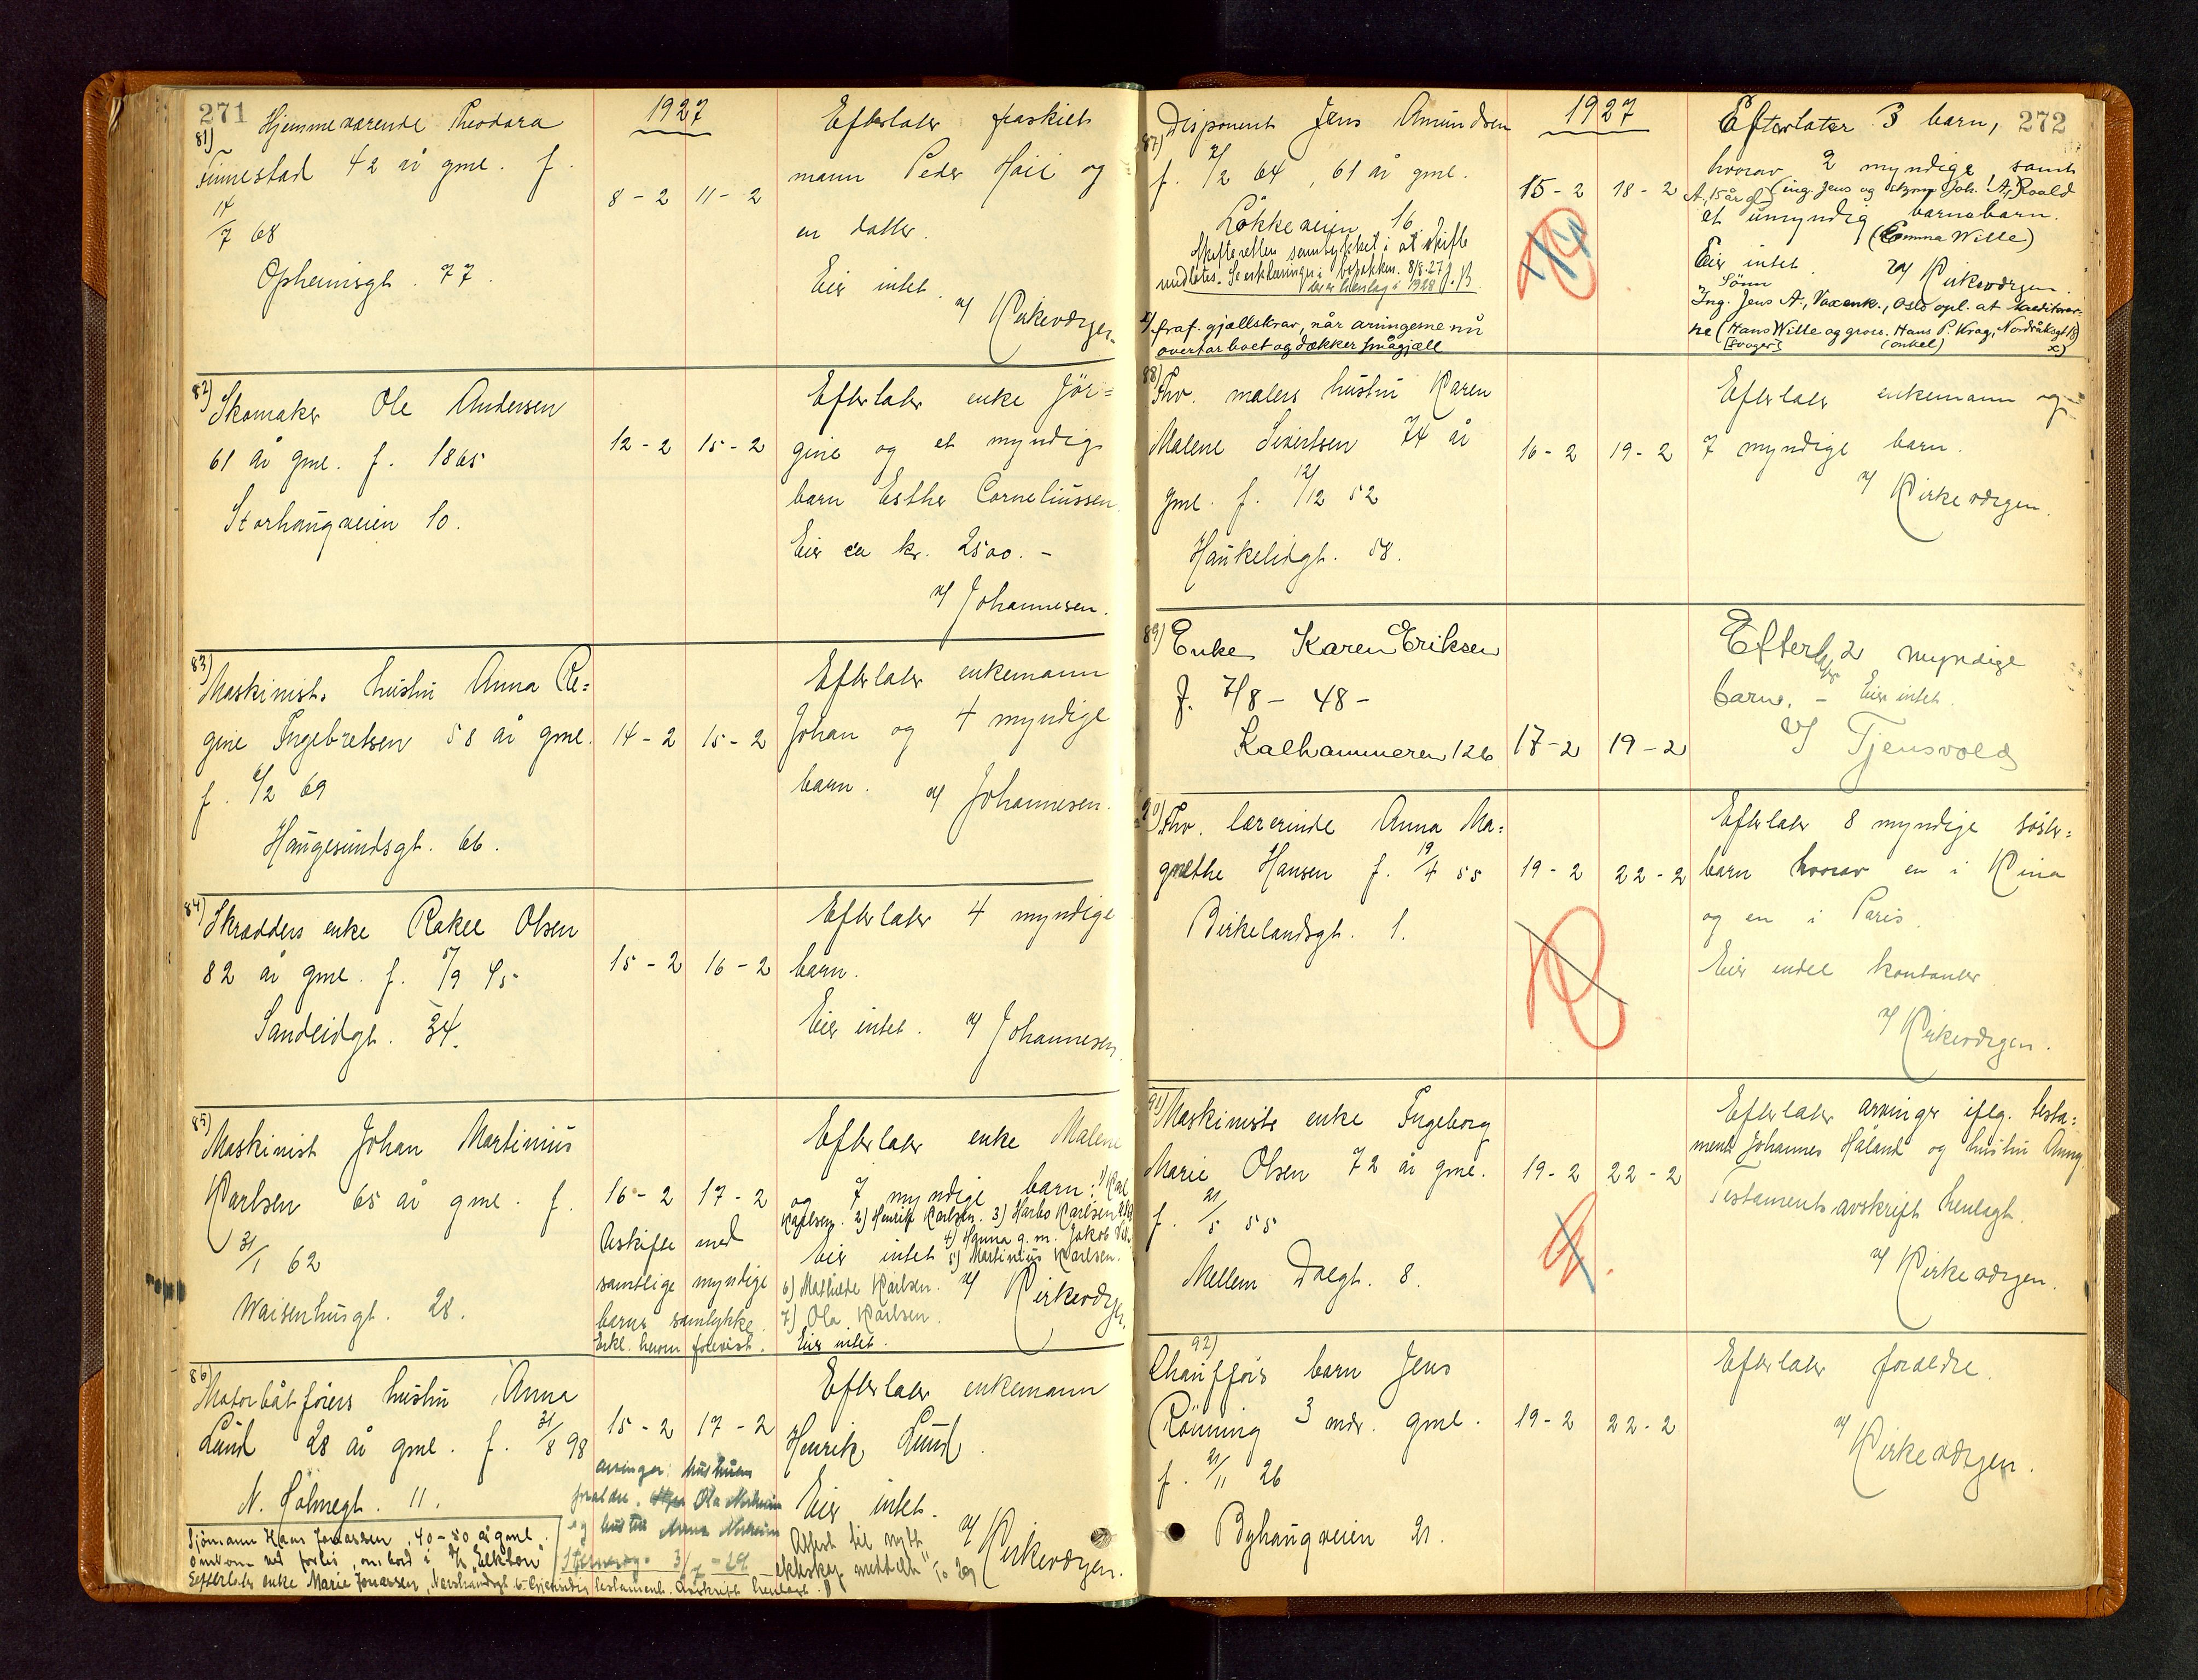 271
1927
81) Hjemmeværende Theodora
Finnestad 42 år gml. f.
14/7 68
Opheimsgt. 77.
8-2 11-2
Efterlater fraskilt
mann Peder Høie og
en datter.
Eier intet.
v/ Kirkeværgen
82) Skomaker Ole Andersen
61 år gml. f. 1865
Storhaugveien 10.
12-2 15-2
Efterlater enke Jör=
gine og et myndig
barn Esther Corneliussen
Eier ca kr. 2500.-
v/ Johannesen.
83) Maskinists hustru Anna Re=
gine Ingebretsen 58 år gml.
f. 6/2 69
Haugesundsgt. 66.
14-2 15-2
Efterlater enkemann
Johan og 4 myndige
barn.
v/ Johannesen.
84) Skrædders enke Rakel Olsen
82 år gml. f. 5/9 45
Sandeidgt. 34.
15-2 16-2
Efterlater 4 myndige
barn.
Eier intet. v/ Johannesen.
85) Maskinist Johan Martinius
Karlsen 65 år gml. f.
31/1 62
Waisenhusgt. 28.
16-2 17-2
Uskifte med
samtlige myndige
barns samtykke.
Erkl. herom forevist.
Efterlater enke Malene
og 7 myndige barn: 1) Karl
Karlsen. 2) Henrik Karlsen. 3) Harbo Karlsen
4) Hanna g. m. Jakob
Eier intet 5) Martinius Karlsen.
6) Mathilde Karlsen. v/ Kirkeværgen.
7) Ola Karlsen.
Eier intet.
86) Motorbåtførers hustru Anna
Lund 28 år gml. f. 31/8 98
N. Holmegt. 11.
15-2 17-2
arvinger: hustruens
foreldre, Ola Norheim
og hustru Anna Norheim
3/7-29
Efterlater enkemann
Henrik Lund.
Eier intet.
Attest til nytt
ekteskap meddelt
v/ Kirkeværgen.
Sjømann Hans Jonassen, 40-50 år gml.
omkom ved forlis, ombord i D/S "Elkton"
Efterlater enke Marie Jonassen, testament. Avskrift henlagt.
272
1927
87) Disponent Jens Amundsen
f. 2/2 64, 61 år gml.
Løkkeveien 16.
Skifteretten samtykket i at skifte
undlates. Se erklæringer i bopakken. 8/8.27
henlagt i 1928
x) fraf. gjællskrav, når arvingerne nu
overtar boet og dækker smågjæll
15-2 18-2
Efterlater 3 barn,
hvorav 2 myndige samt
(ing. Jens og Joh. A., Roald
A., 15 år gl.)
et umyndig barnebarn.
(Emma Wille)
Eier intet. v/ Kirkeværgen.
Sønn
Ing. Jens A., Voxenk., Oslo opl. at kreditorer-
ne (Hans Wille og gross. Hans P. Krag, Nordråksgt 18)
[svoger] (onkel) x)
88) Fhv. malers hustru Karen
Malene Sivertsen 74 år
gml. f. 12/12 52
Haukelidgt. 58.
16-2 19-2
Efterlater enkemann og
7 myndige barn.
v/ Kirkeværgen.
89) Enke Karen Eriksen
f. 7/8-48-
Kalhammeren 126
17-2 19-2
Efterl. 2 myndige
barn. - Eier intet.
v/ Tjensvold
90) Fhv. lærerinde Anna Ma=
grethe Hansen f. 19/4 55
Birkelandsgt. 1.
19-2 22-2
Efterlater 8 myndige søster=
barn hvorav en i Kina
og en i Paris.
Eier endel kontanter
v/ Kirkeværgen.
91) Maskinists enke Ingeborg
Marie Olsen 72 år gml.
f. 21/5 55
Mellem Dalgt. 8.
19-2 22-2
Efterlater arvinger iflg. testa=
ment Johannes Håland og hustru Anny.
Testaments avskrift henlagt.
v/ Kirkeværgen.
92)
Chaufførs barn Jens
Rönning 3 mdr. gml.
f. 21/11 26
Byhaugveien 21.
19-2 22-2
Efterlater foreldre.
v/ Kirkeværgen.